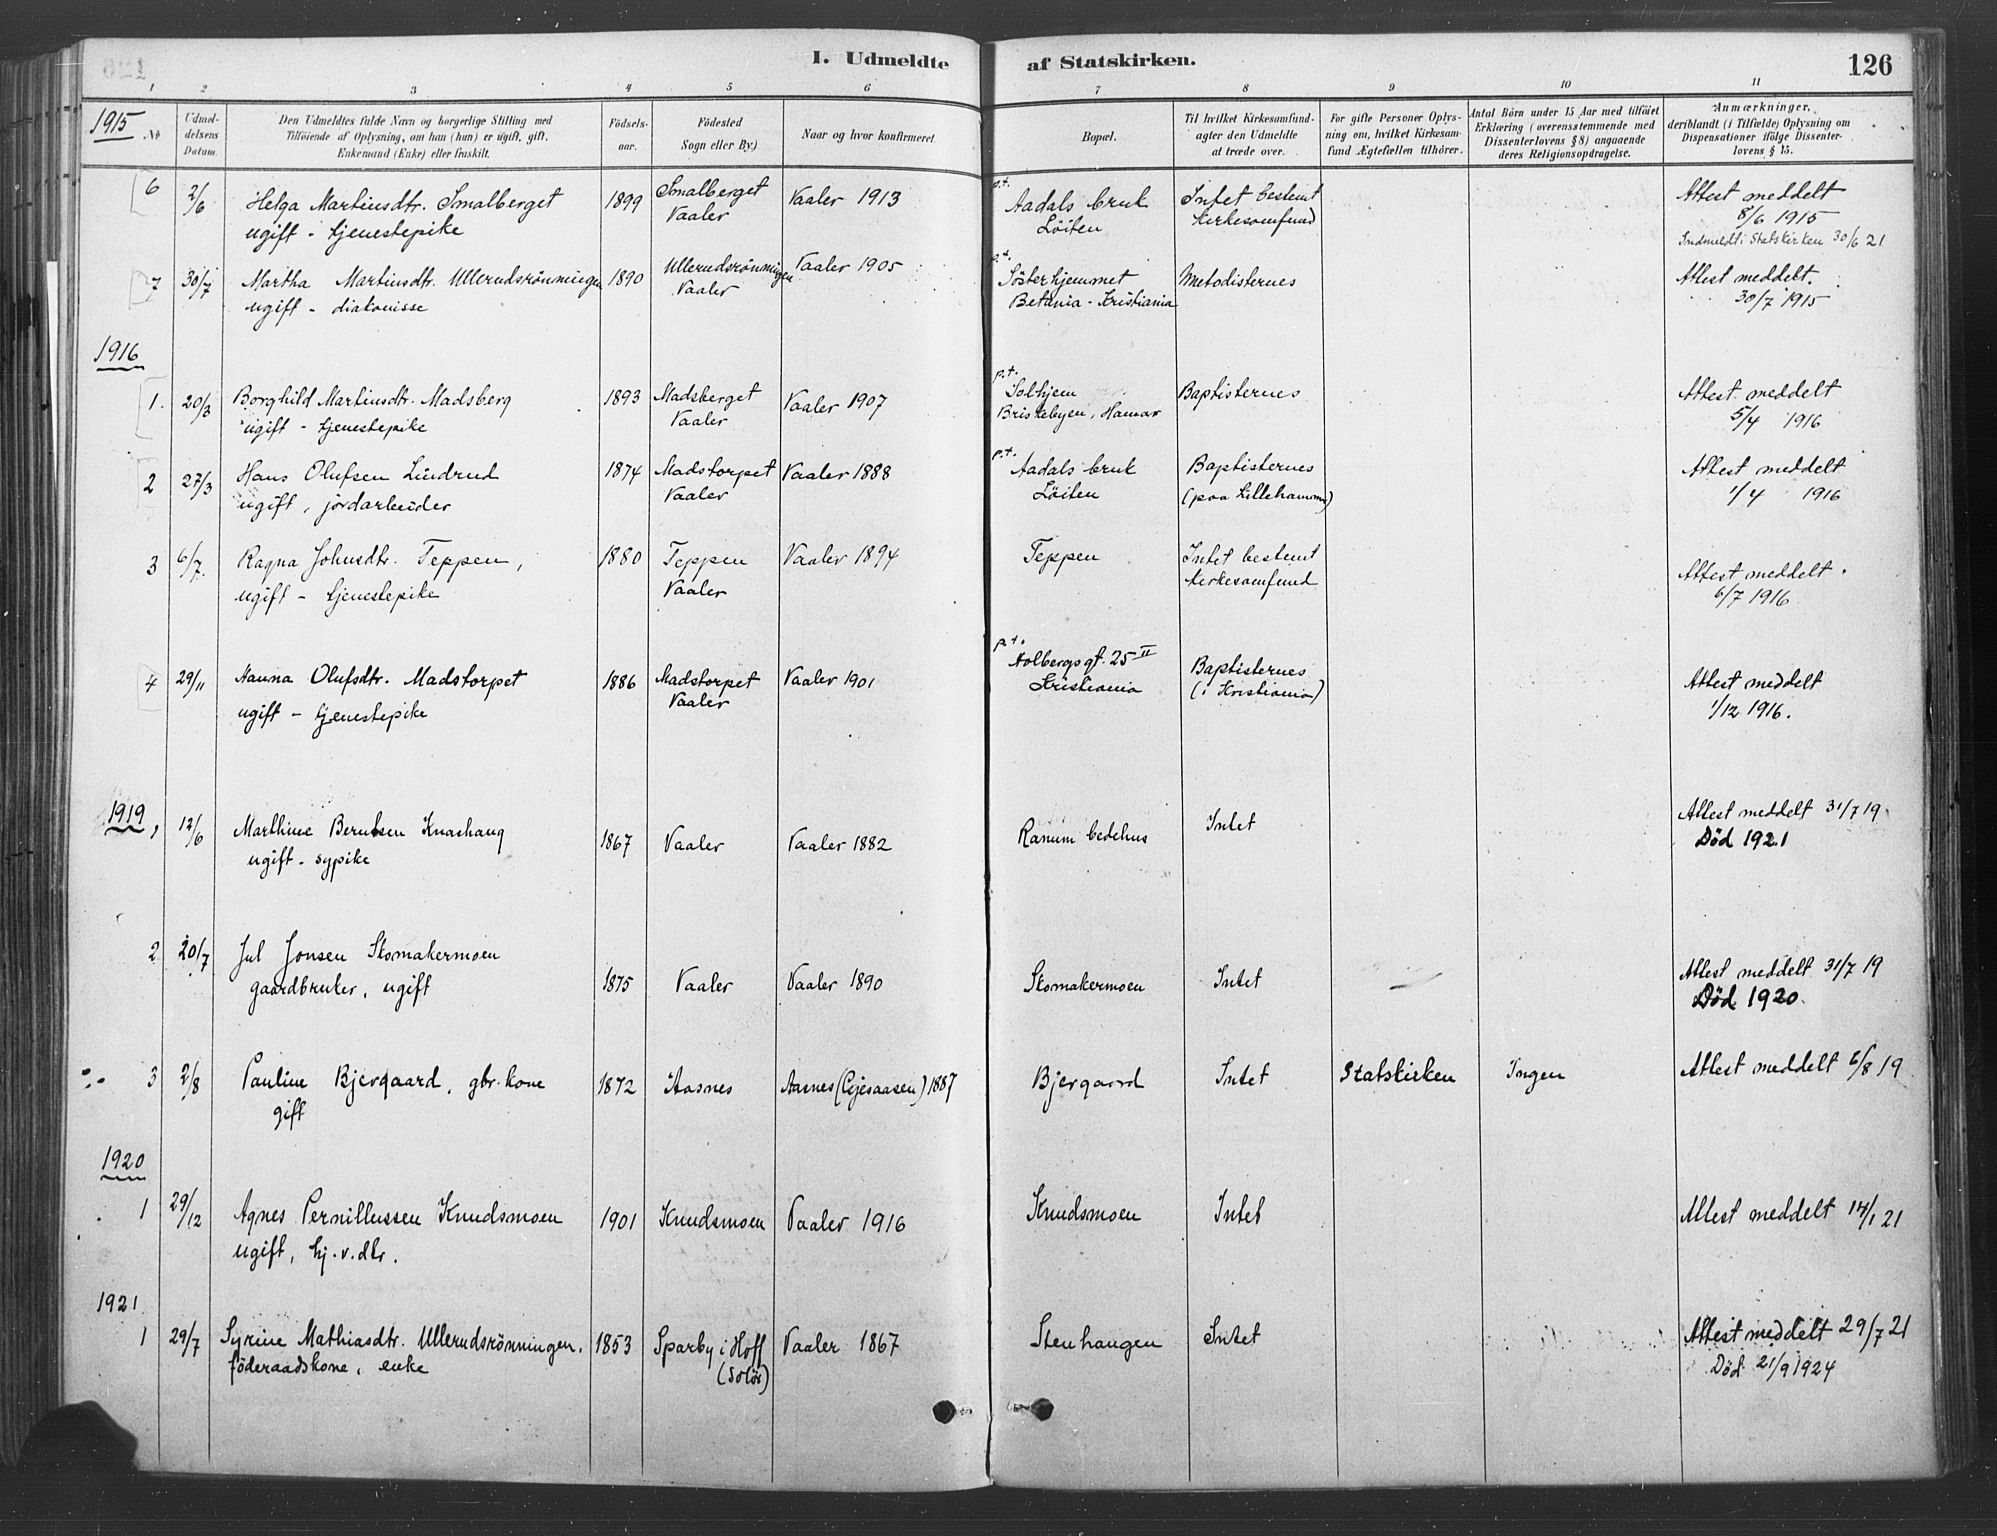 I. Udmeldte af Statskirken. 126
1 2 3 4 5 6 7 8 9 10 11
1915 №
Udmeldelsens Datum.
Den Udmeldtes fulde Navn og borgerlige Stilling med
Tilföiende af Oplysning, om han (hun) er ugift, gift,
Enkemand (Enke) eller fraskilt.
Födselsaar.
Födested
Sogn eller By.)
Naar og hvor konfirmeret.
Bopæl.
Til hvilket Kirkesamfund
agter den Udmeldte
at træde over.
For gifte Personer Oplysning om, hvilket Kirkesamfund Ægtefællen tilhörer.
Antal Börn under 15 Aar med tilföiet
Erklæring (overensstemmende med
Dissenterlovens § 8) angaaende
deres Religionsopdragelse.
Anmærkninger,
deriblandt (i Tilfælde) Oplysning om
Dispensationer ifölge Dissenterlovens § 15.
6 2/6 Helga Martinsdtr. Smalberget 1899 Smalberget Vaaler 1913 p.t. Aadals bruk Intet bestemt Attest meddelt
ugift - tjenestepike Vaaler Löiten kirkesamfund 8/6 1915
Indmeldt i Statskirken 30/6 21
7 30/7 Martha Martinsdtr. Ullerudsrönningen 1890 Ullerudsrönningen Vaaler 1905 p.t. Sösterhjemmet Metodisternes Attest meddelt.
ugift - diakonisse Vaaler Betania - Kristiania 30/7 1915
1916
1. 20/3 Borghild Martinsdtr. Madsberg 1893 Madsberget Vaaler 1907 p.t. Solhjem Baptisternes Attest meddelt
ugift - tjenestepike Vaaler Briskebyen, Hamar 5/4 1916
2 27/3 Hans Olufsen Lindrud 1874 Madstorpet Vaaler 1888 p.t. Aadals bruk Baptisternes Attest meddelt
ugift, jordarbeider Vaaler Löiten (paa Lillehammer) 1/4 1916
3 6/7. Ragna Johnsdtr. Teppen, 1880 Teppen Vaaler 1894 Teppen Intet bestemt Attest meddelt.
ugift - tjenestepike Vaaler kirkesamfund 6/7 1916
4 29/11 Hanna Olufsdtr. Madstorpet 1886 Madstorpet Vaaler 1901 p.t. Holbergsgt. 25 II Baptisternes Attest meddelt
ugift - tjenestepike Vaaler Kristiania (i Kristiania) 1/12 1916.
1919
1 12/6 Marthine Berntsen Knashaug 1867 Vaaler Vaaler 1882 Ranum bedehus Intet Attest meddelt 31/7 19
ugift - sypike Död 1921
2 20/7 Jul Jonsen Skomakermoen 1875 Vaaler Vaaler 1890 Skomakermoen Intet Attest meddelt 31/7 19
gaardbruker, ugift Död 1920.
3 2/8 Pauline Bjergaard, gbr. kone 1872 Aasnes Aasnes (Gjesaasen) 1887 Bjergaard Intet Statskirken Ingen Attest meddelt 6/8 19
gift
1920
1 29/12 Agnes Pernillussen Knudsmoen 1901 Knudsmoen Vaaler 1916 Knudsmoen Intet Attest meddelt 14/1 21
ugift, hj. v. dtr.
1921
1 29/7 Syrine Mathiasdtr. Ullerudsrönningen, 1853 Sparby i Hoff Vaaler 1867 Stenhaugen Intet Attest meddelt 29/7 21
föderaadskone, enke (Solör) Död 21/9 1924